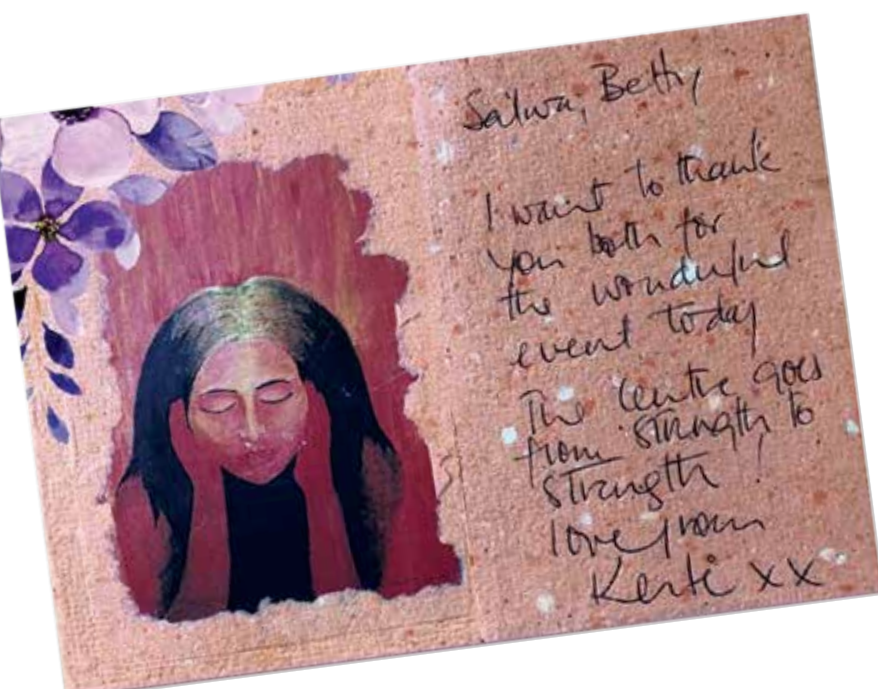 Salwa, Betty
I want to thank
you both for
the wonderful
event today
The centre goes
from strength to
strength!
love from
Kerti xx